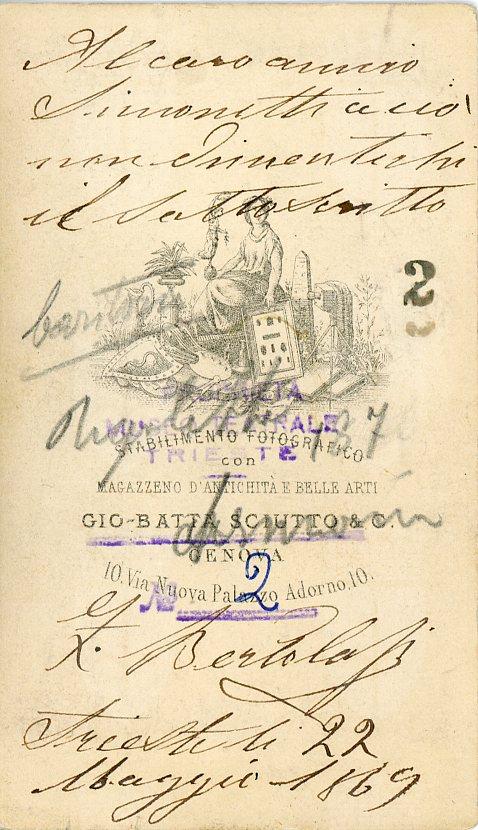 Al caro amico
Simonetti a ciò
non dimentichi
il sottoscritto
2
baritono
PROPRIETÀ
MUSEO TEATRALE
TRIESTE
STABILIMENTO FOTOGRAFICO
con
MAGAZZENO D'ANTICHITÀ E BELLE ARTI
GIO-BATTA SCIUTTO & C.
GENOVA
10. Via Nuova Palazzo Adorno. 10.
No 2
Z. Bertolassi
Trieste li 22
Maggio 1869